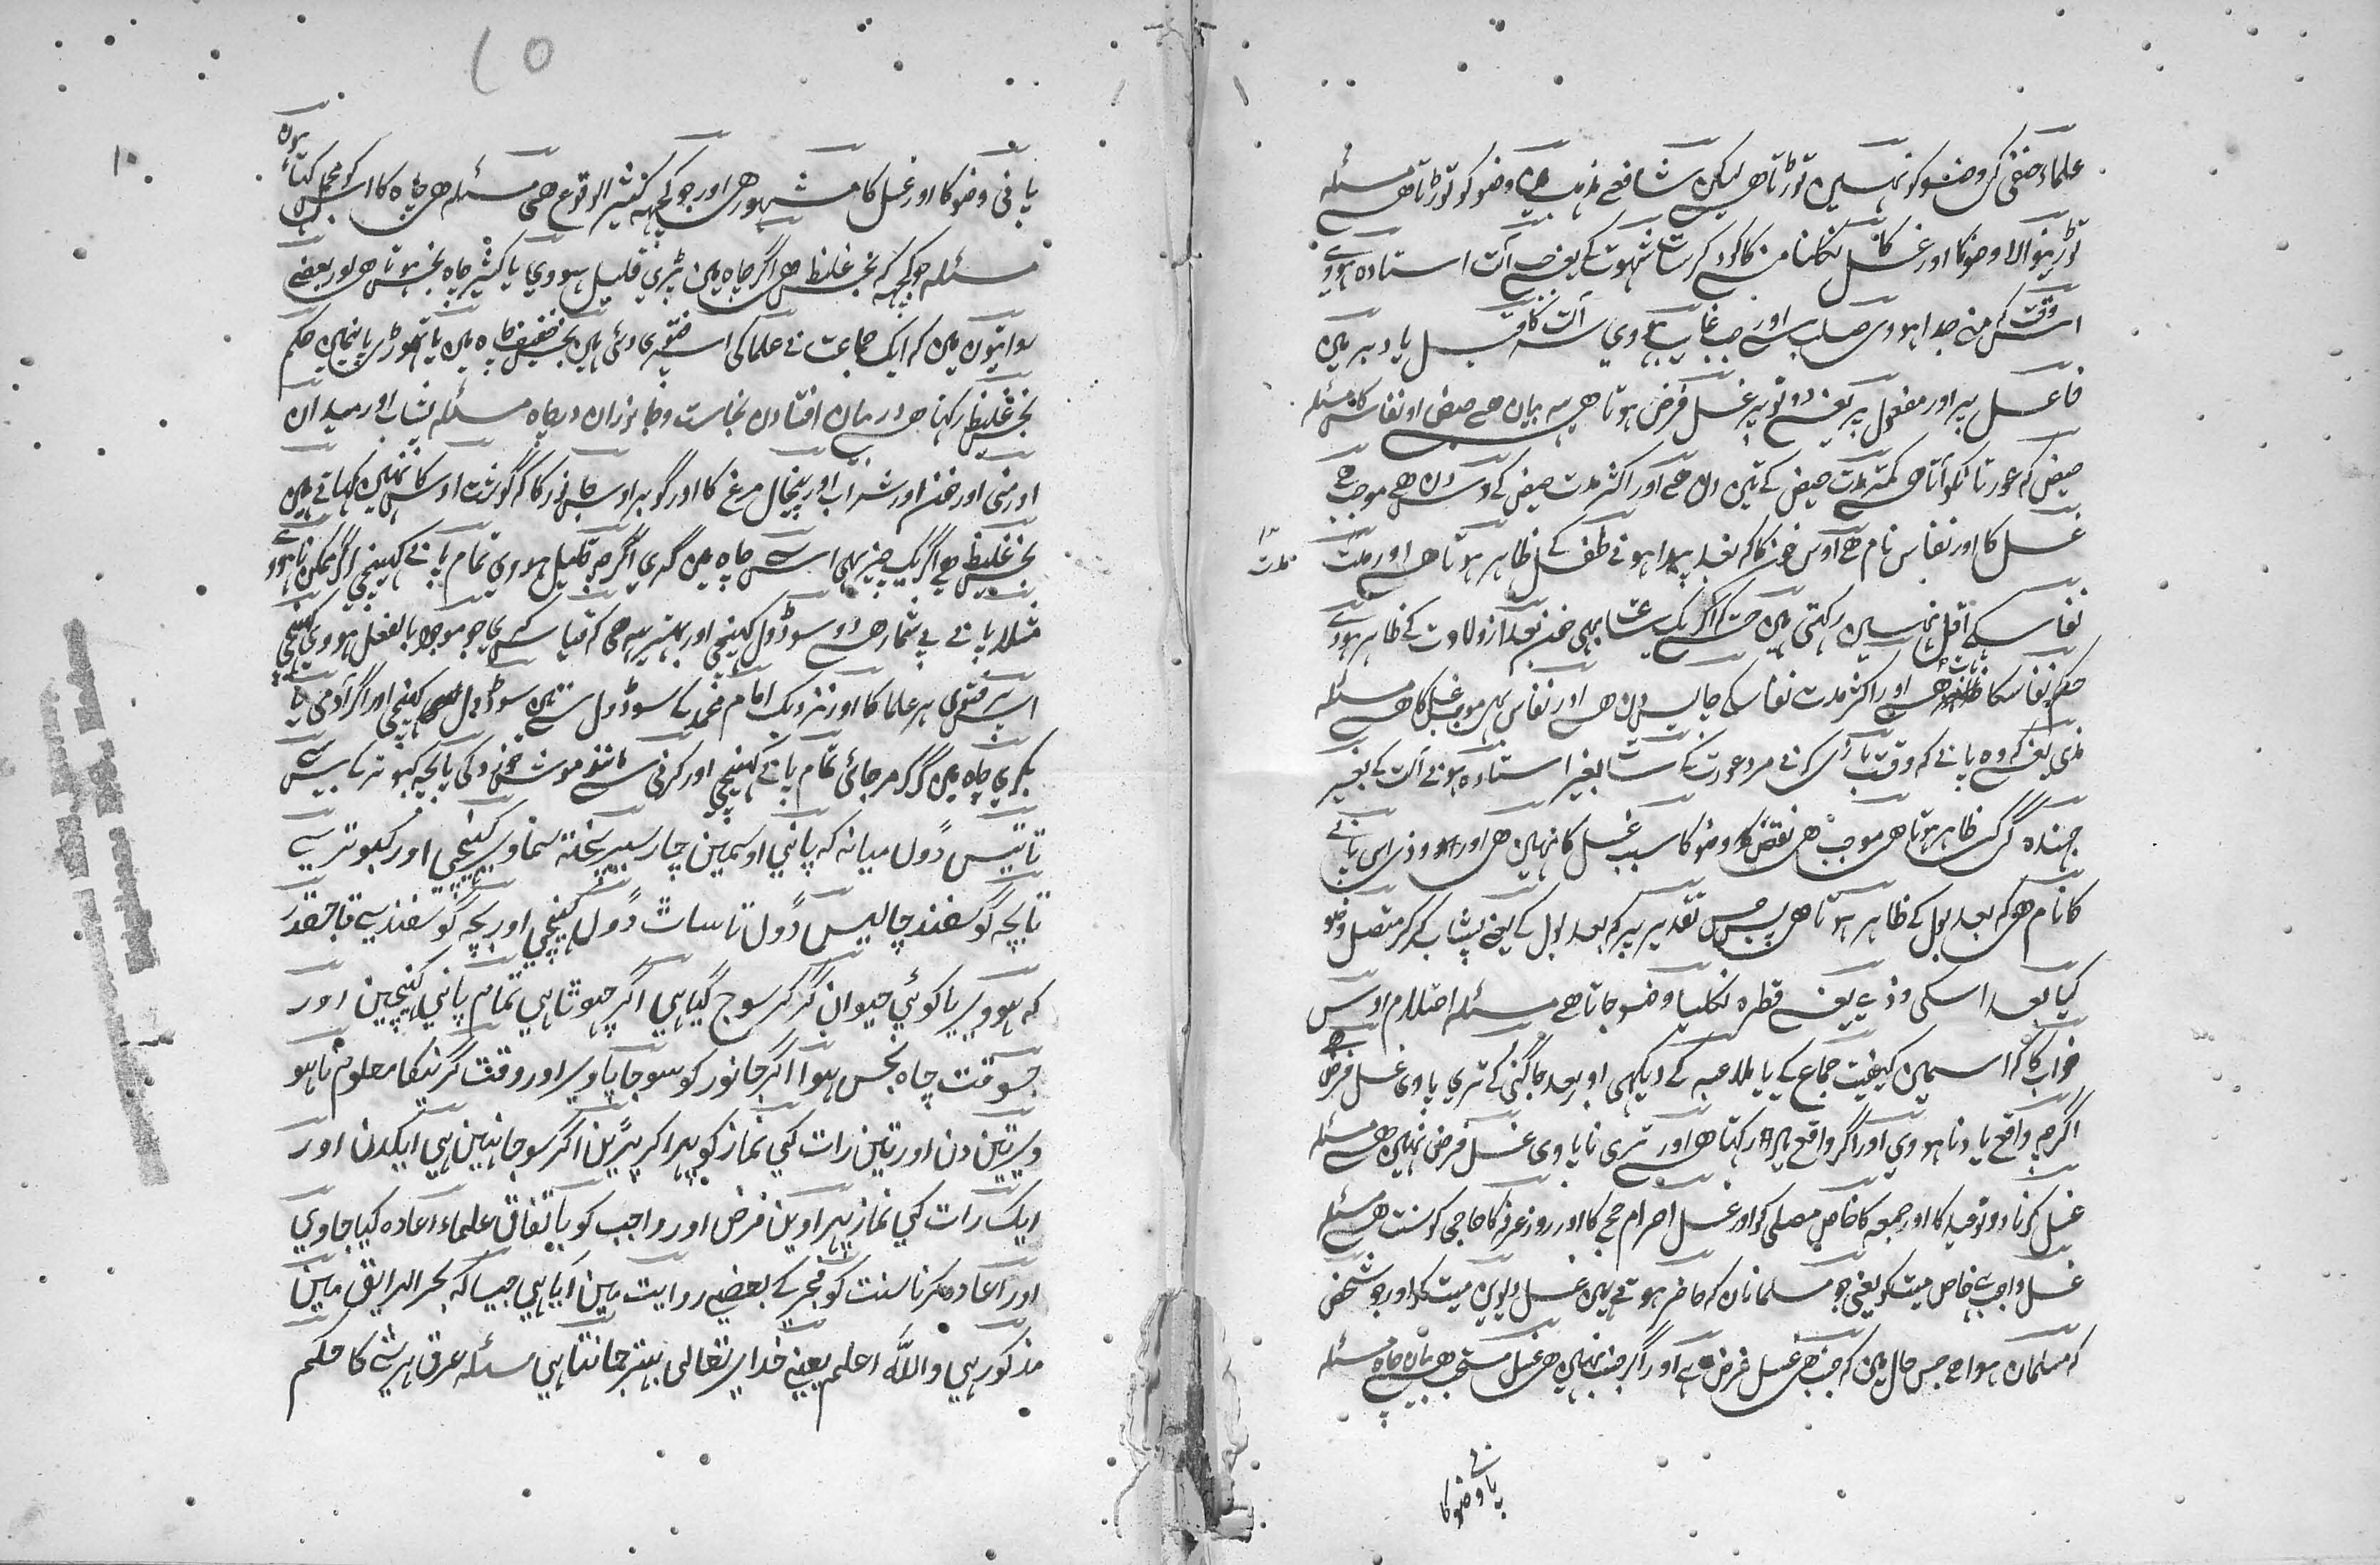 علماء حنفی کی وضو کو نہین توڑتا ہی لیکن شافعے مذہب مین وضو کو توڑتا ہی مسئلہ
توڑنیوالا وضو کا اور غسل کا نکلنا منے کا کود کر سات شہوت کے یعنے آلت استادہ ہووے
وقت کہ منے جدا ہووی صلب سے اور جب غایب ہووی آلت کا قبل یا دبر مین
فاعل پر اور مفعول پر یعنے دونو پر غسل فرض ہوتا ہی یہ بیان ہے حیض او نفاس کا مسئلہ
حیض کہ عورتانکو آتا ہی کمتر مدت حیض کے تین دن ہے اور اکثر مدت حیض کے دس دن ہے موجب ہے
غسل کا اور نفاس نام ہے اوس خون کا کہ بعد پیدا ہونے طفل کے ظاہر ہوتا ہے اور مدت
مدت
نفاس کے اقل نہین رکہتی ہین حتے کہ اگر یک ساعت بہی خون بعد از ولادت کے ظاہر ہووے
حکم نفاس کا ثابت ہے اور اکثر مدت نفاس کے چالیس دن ہے اور نفاس بہی موجب غسل کا ہے مسئلہ
مذی یعنے وہ پانے کہ وقت بازی کرنے مرد عورت کے سات بغیر استادہ ہونے آلت کے بغیر
جہندہ گی ظاہر ہوتا ہی موجب ہی نقض وضو کا سبب غسل کا نہین ہی اور وذی اس پانے
کا نام ہی کہ بعد بول کے ظاہر ہوتا ہی پس جس تقدیر پر کہ بعد بول کے یعنے پیشاب کر کر متصل وضو
کیا بعد اسکی وذے یعنے قطرہ نکلیا وضو جاتا ہے مسئلہ احتلام اوس
خواب کا کہ اسمین کیفیت جماع کے یا ملاعبہ کے دیکہی او بعد جاگنی کے تری پاوی غسل فرض ہے
اگرچہ واقع یاد نا ہووی اور اگر واقع یاد رکہتا ہی اور تری نا پاوی غسل فرض نہین ہے مسئلہ
غسل کرنا دو نو عید کا اور جمعہ کا خاص مصلی کو اور غسل احرام حج کا اور روز عرفہ کا حاجی کو سنت ہی مسئلہ
غسل واجب ہے خاص میت کو یعنی جو مسلمانان کہ حاضر ہوتے ہین غسل دیوین میت کو اور جو شخص
کہ مسلمان ہوا جس حال مین کہ جنب ہی غسل فرض ہے اور اگر جنب نہین ہی غسل مستحب ہی بیان چاہ مسئلہ
پانے وضو کا
۱۰
پانی وضو کا اور غسل کا مشہور ہی اور جو کچہہ کثیر الوقوع ہی مسئلہ ہی چاہ کا اس کو مجمل کہتا ہون
مسئلہ جو کچہہ کہ نجس غلیظ ہی اگر چاہ مین پڑی قلیل ہووی یا کثیر چاہ نجس ہوتا ہی اور بعضے
روایتون مین کہ ایک جماعت نے علما کی اس پر فتوی دئی ہین نجس خفیف چاہ مین یا تہوڑی پانیمین حکم
نجس غلیظ رکہتا ہی در بیان افتادن نجاست و جانوران در چاہ مسئلہ پیشاب اور میدان
اور منی اور خون اور شراب اور پیخال مرغ کا اور گوبر اوس جانور کا کہ گوشت اوس کا نہین کہاتے ہین
نجس غلیظ ہے اگر یک چیز بہی اس سے چاہ مین گری اگرچہ قلیل ہووی تمام پانے کہینچی اگر ممکن نا ہووے
مثلا پانے بے شمار ہے دو سو ڈول کہینچی اور بہتر یہ ہی کہ قیاس کری جو موجود بالفعل ہووی کہینچی
اسی پر فتوی ہر علما کا اور نزدیک امام محمد کے سو ڈول سے تین سو ڈول کہینچی اور اگر آدمی یا
بکری چاہ مین گر کر مر جائی تمام پانے کہینچی اور کرنی سے مانند موش خورد کی یا بچہ کبوتر کے بیس
تا تیس ڈول میانہ کہ پانی اوسمین چار سیر پختہ سماوی کہینچی اور کبوتر سے
تا بچہ گوسفند چالیس ڈول تا سات ڈول کہینچی اور بچہ گوسفند سے تا جقدر
کہ ہووی یا کوئی حیوان گر کر سوج گیا ہی اگر چہوٹا ہی تمام پانی کہینچین اور
جسوقت چاہ نجس ہوا اگر جانور کو سوجا پاوی اور وقت گرنیکا معلوم نا ہو
وی تین دن اور تین رات کی نماز کو پہرا کر پڑین اگر سوجا نہین ہی ایکدن اور
ایک رات کی نماز پہراوین فرض اور واجب کو باتفاق علماء اعادہ کیا جاوی
اور اعادہ کرنا سنت کو فجر کے بعضی روایت مین آیا ہی جیسا کہ بحر الرایق مین
مذکور ہی واللّٰہ اعلم یعنی خدای تعالی بہتر جانتا ہی مسئلہ عرق ہر شے کا حکم